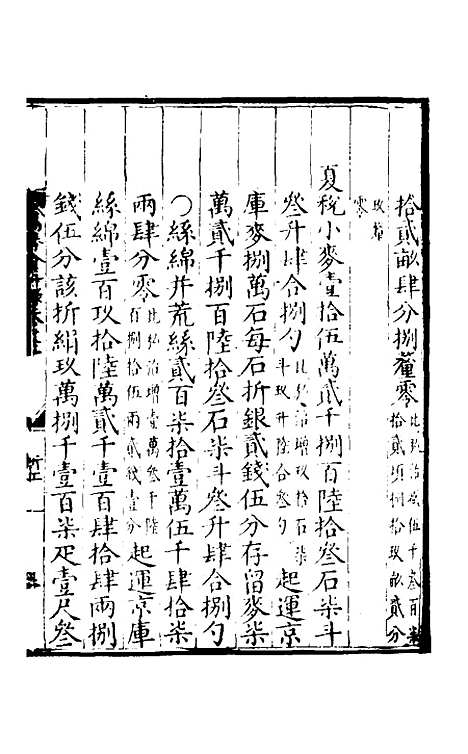 拾貳畝肆分捌釐零比弘治減伍千叁百
拾貳頃捌拾玖畝貳分
玖釐
零
夏稅小麥壹拾伍萬貳千捌百陸拾叁石柒斗
叁升肆合捌勺比弘治增玖拾石柒
斗玖升陸合叁勺起運京
庫麥捌萬石每石折銀貳錢伍分存留麥柒
萬貳千捌百陸拾叁石柒斗叁升肆合捌勺
○絲綿幷荒絲貳百柒拾壹萬伍千肆拾柒
兩肆分零比弘治增壹萬叁千陸
百捌拾伍兩貳錢壹分起運京庫
絲綿壹百玖拾陸萬貳千壹百肆拾肆兩捌
錢伍分該折絹玖萬捌千壹百柒疋壹尺叁